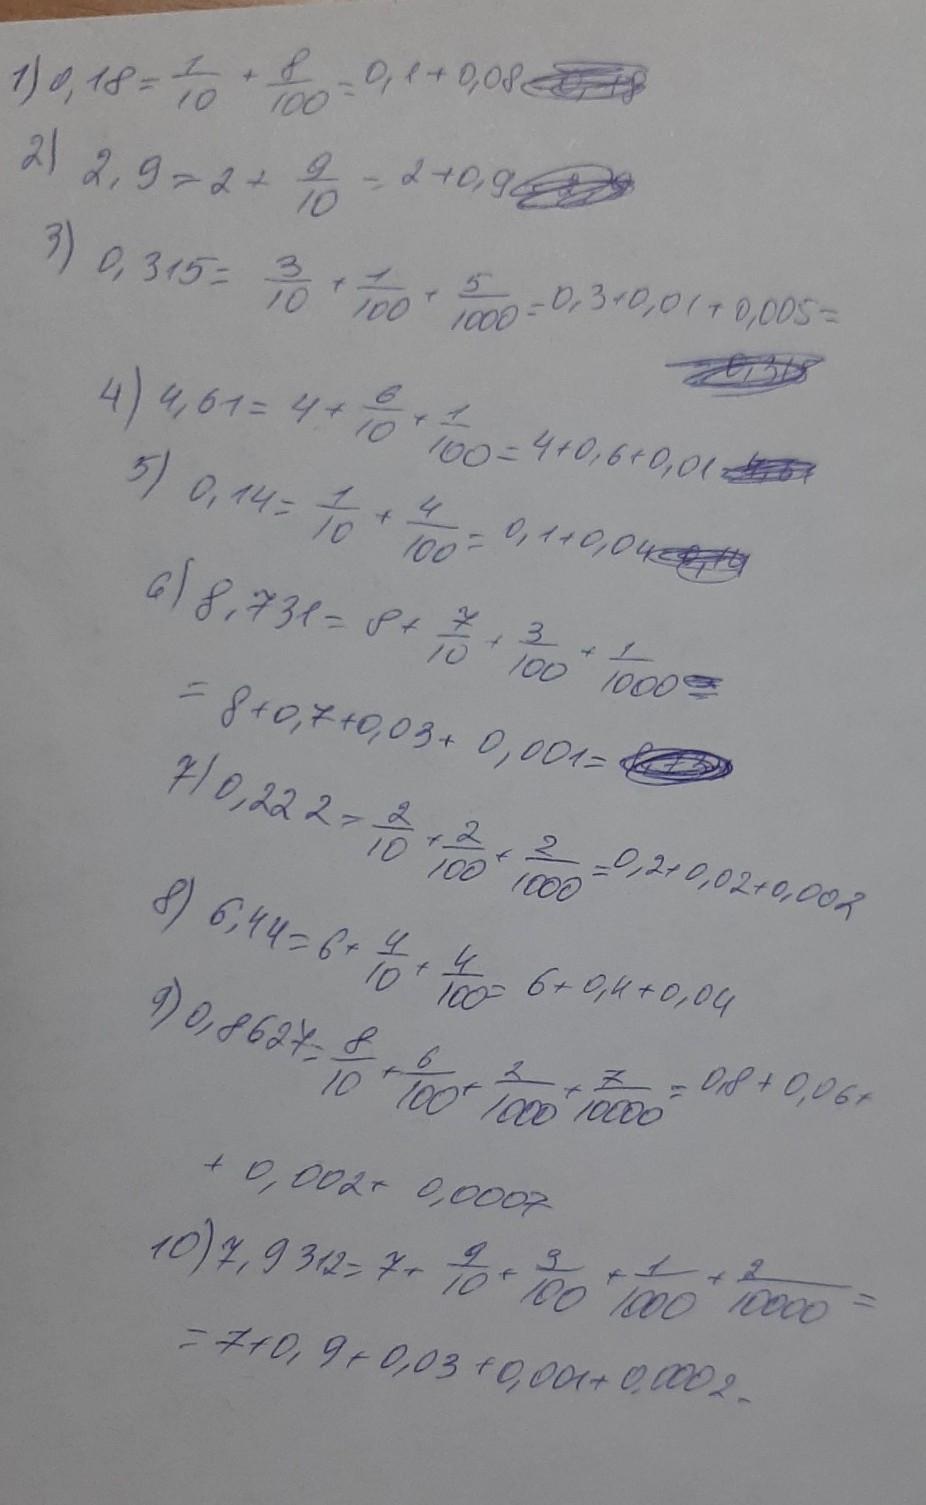 1) 0,18 = 1/10 + 8/100 = 0,1 + 0,08
2) 2,9 = 2 + 9/10 = 2 + 0,9
3) 0,315 = 3/10 + 1/100 + 5/1000 = 0,3 + 0,01 + 0,005 =
4) 4,61 = 4 + 6/10 + 1/100 = 4 + 0,6 + 0,01
5) 0,14 = 1/10 + 4/100 = 0,1 + 0,04
6) 8,731 = 8 + 7/10 + 3/100 + 1/1000 =
= 8 + 0,7 + 0,03 + 0,001 =
7) 0,222 = 2/10 + 2/100 + 2/1000 = 0,2 + 0,02 + 0,002
8) 6,44 = 6 + 4/10 + 4/100 = 6 + 0,4 + 0,04
9) 0,8627 = 8/10 + 6/100 + 2/1000 + 7/10000 = 0,8 + 0,06 +
+ 0,002 + 0,0007
10) 7,9312 = 7 + 9/10 + 3/100 + 1/1000 + 2/10000 =
= 7 + 0,9 + 0,03 + 0,001 + 0,0002.